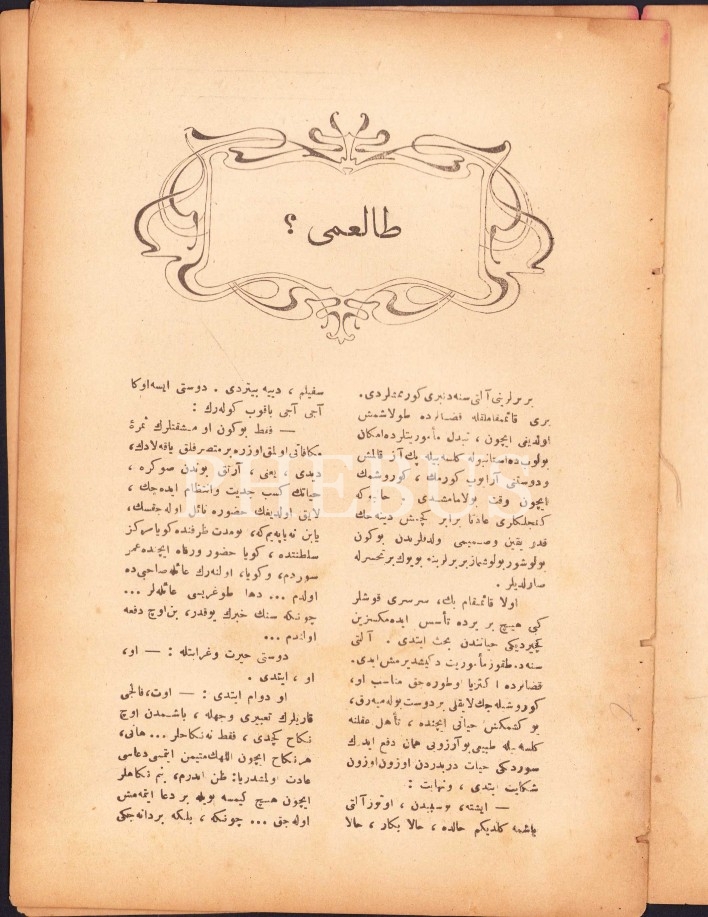 طالعمی ؟
بربرلرینی آلتی سنه دنبری كورممشلردی.
بری قائممقاملقله قضالرده طولاشمش
اولدیغی ایچون ، تبدل مأموریتلرده امكان
بولوب ده استانبوله كلسه بیله پك آز قالمش
و دوستنی آرایوب كورمك ، كوروشمك
ایچون وقت بولامامشدی . حابوكه
كنجلكلری عادتا برابر كچمش دینه جك
قدر یقین وصمیمی ولدقلرندن بوكون
بولوشور بولوشماز بربرلرینه بویوك برتحسرله
صارلدیلر .
اولا قائممقام بك، سرسری قوشلر
كبی هیچ بر یرده تأسس ایده مكسزین
كچیردیكی حیاتندن بحث ایتدی . آلتی
سنه ده طقوز مأموریت دكیشدیرمش ایدی.
قضالرده اكثریا اوطوره جق مناسب او،
كوروشیله جك لایقلی بر دوست بوله میه رق،
بو كشمكش حیاتی ایچنده ، تأهل عقلنه
كلسه بیله طبیعی بو آرزویی همان دفع ایدرك
سوردیكی حیات دربدردن اوزون اوزون
شكایت ایتدی ، ونهایت :
— ایشته، بوسببدن ، اوتوز آلتی
یاشمه كلدیكم حالده ، حالا بكار ، حالا
سفیلم ، دییه بیتردی . دوستی ایسه اوكا
آجی آجی باقوب كوله رك :
— فقط بوكون او مشقتلرك ثمرۀ
مكافاتی اولمق اوزره بر متصرفلق یاقه لادك،
دیدی ، یعنی ، آرتق بوندن صوكره ،
حیاتك كسب جدیت وانتظام ایده جك ،
لایق اولدیغك حضوره نائل اوله جقسك،
یابن نه یاپه یم كه، بومدت ظرفنده كویا مركز
سلطنتده ، كویا حضور ورفاه ایچنده عمر
سوردم، وكویا، اولنه رك عائله صاحبی ده
اولدم ... دها طوغریسی عائله لر ...
چونكه سنك خبرك یوقدر، بن اوچ دفعه
اولندم ...
دوستی حیرت وغرابتله : — او،
او ، ایتدی .
او دوام ایتدی : — اوت، فالجی
قاریلرك تعبیری وجهله ، باشمدن اوچ
نكاح كچدی ، فقط نه نكاحلر ... هانی،
هر نكاح ایچون اللهك متیمن ایتمسی دعاسی
عادت اولمشدریا: ظن ایدرم، بنم نكاحلر
ایچون هیچ كیمسه بویله بر دعا ایتمه مش
اوله جق ... چونكه ، بلكه بردانه جكی